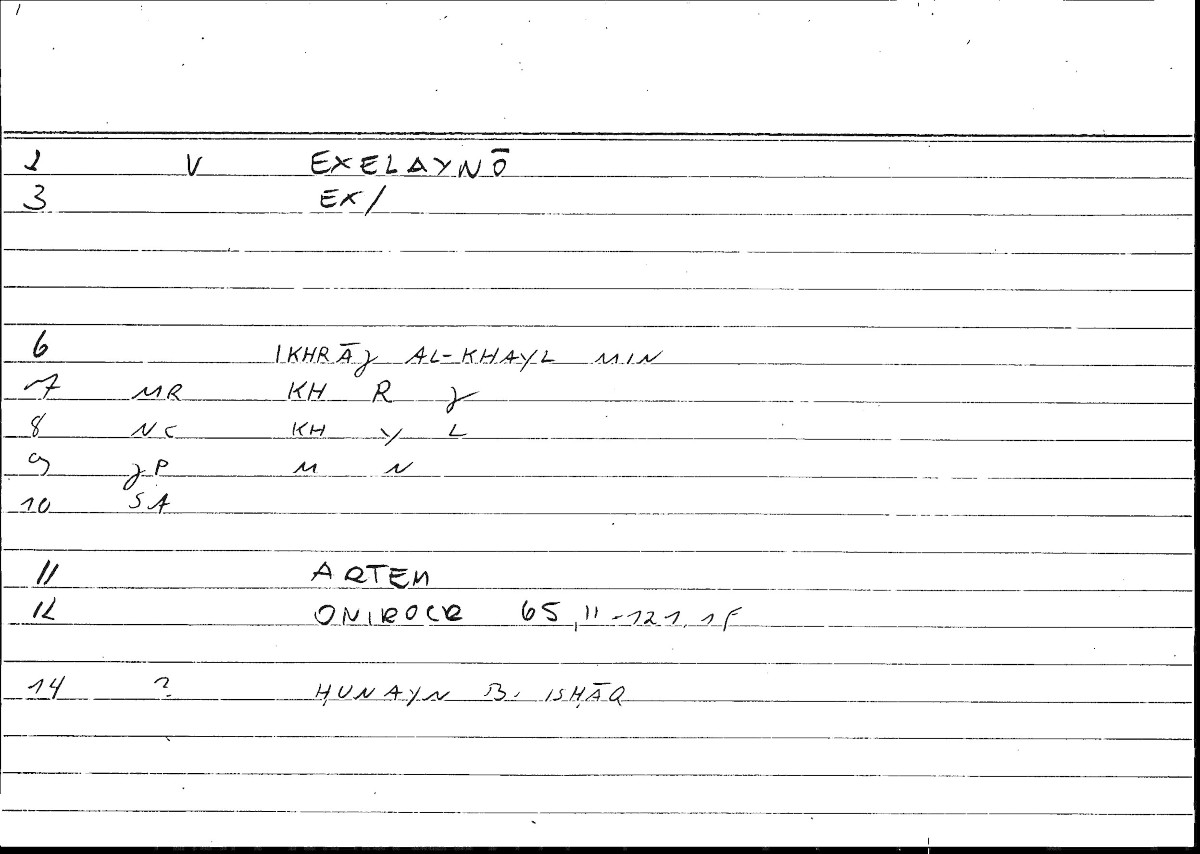 2 V EXELAYNŌ
3 EX/
6 IKHRĀJ AL-KHAYL MIN
7 MR KH R J
8 NC KH Y L
9 JP M N
10 SA
11 ARTEM
12 ONIROCR 65,11-121,1F
14 ? ḤUNAYN B. ISḤĀQ